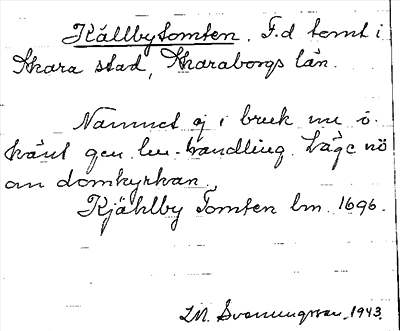 Källbytomten. F.d tomt i
Skara stad, Skaraborgs län.
Namnet ej i bruk nu o.
känt gen. lm-handling. Läge nö
om domkyrkan.
Kjählby Tomten lm. 1696.
I.M. Svenningsson. 1943.